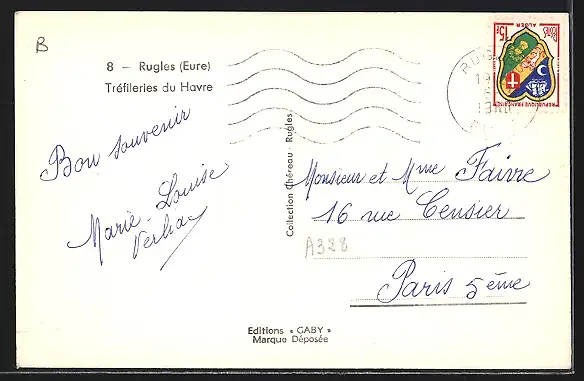 B
8 — Rugles (Eure)
Tréfileries du Havre
Bon souvenir
Marie-Louise
Collection Chéreau - Rugles
Monsieur et Mme Faivre
16 rue Censier
A328
Paris 5ème
Editions « GABY »
Marque Déposée
15F
ALGER
REPUBLIQUE FRANÇAISE
POSTES
RUG